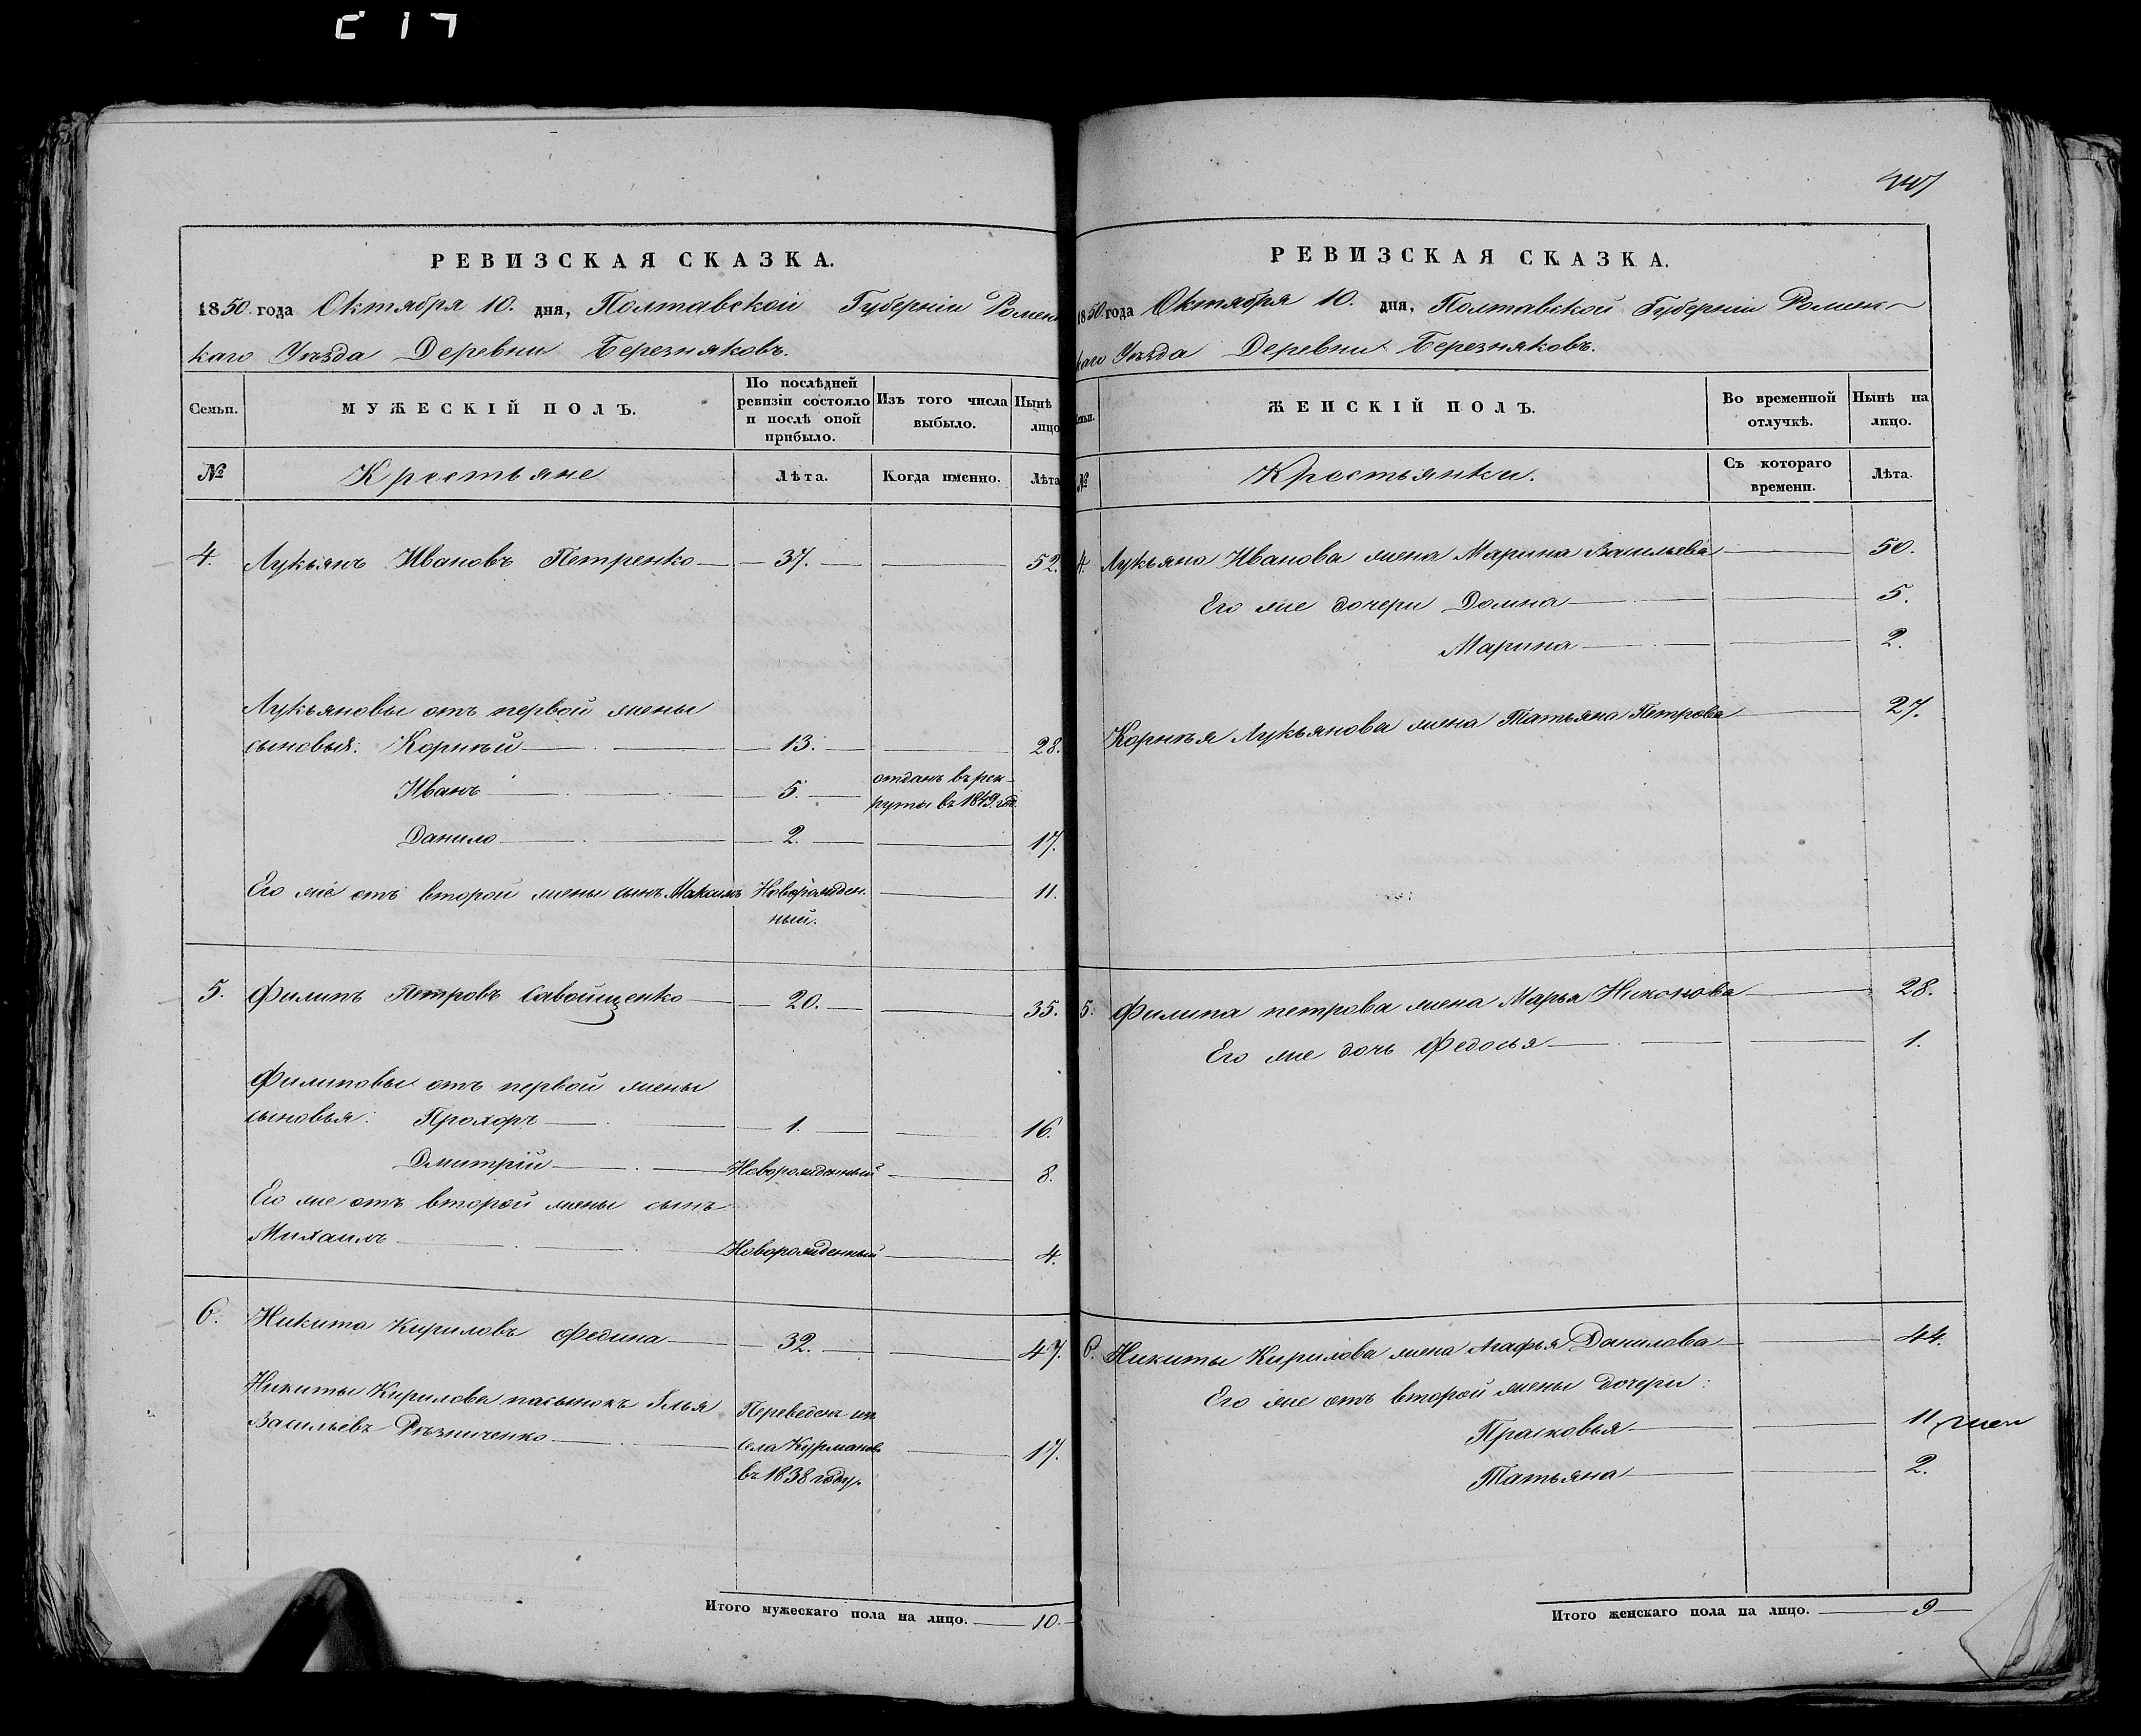 РЕВИЗСКАЯ СКАЗКА.
1850 года Октября 10. дня, Полтавской Губерніи Ромен
каго Уѣзда Деревни Березняковъ.
Семьи.
МУЖЕСКІЙ ПОЛЪ.
По послѣдней
ревизіи состояло
и послѣ оной
прибыло.
Изъ того числа
выбыло.
Нынѣ
лицо
№
Крестьяне
Лѣта.
Когда именно.
Лѣта
4. Лукьянъ Ивановъ Петренко 37. 52.
Лукьяновы отъ первой жены
сыновья: Корнѣй 13. 28.
Иванъ 5. отданъ въ рек-
руты въ 1849 год.
Данило 2. 17.
Его же отъ второй жены сынъ Максимъ Новорожден- 11.
ный.
5. Филипъ Петровъ Савойщенко 20. 35.
Филиповы отъ первой жены
сыновья: Прохоръ 1. 16.
Дмитрій Новорожденный 8.
Его же отъ второй жены сынъ
Михаилъ Новорожденный 4.
6. Никита Кириловъ Федина 32. 47.
Никиты Кирилова пасынокъ Илья Переведенъ изъ
Васильевъ Рѣзниченко села Курмановъ 17.
въ 1838 году.
Итого мужескаго пола на лицо. 10.
РЕВИЗСКАЯ СКАЗКА.
1850 года Октября 10. дня, Полтавской Губерніи Ромен-
каго Уѣзда Деревни Березняковъ.
Семьи.
ЖЕНСКІЙ ПОЛЪ.
Во временной
отлучкѣ.
Нынѣ на
лицо.
№
Крестьянки.
Съ котораго
времени.
Лѣта.
4. Лукьяна Иванова жена Марина Васильева 50.
Его же дочери Домна 5.
Марина 2.
Корнѣя Лукьянова жена Татьяна Петрова 27.
5. Филипа петрова жена Марья Никонова 28.
Его же дочь Федосья 1.
6. Никиты Кирилова жена Агафья Данилова 44.
Его же отъ второй жены дочери:
Прасковья 11
Татьяна 2.
Итого женскаго пола на лицо. 9